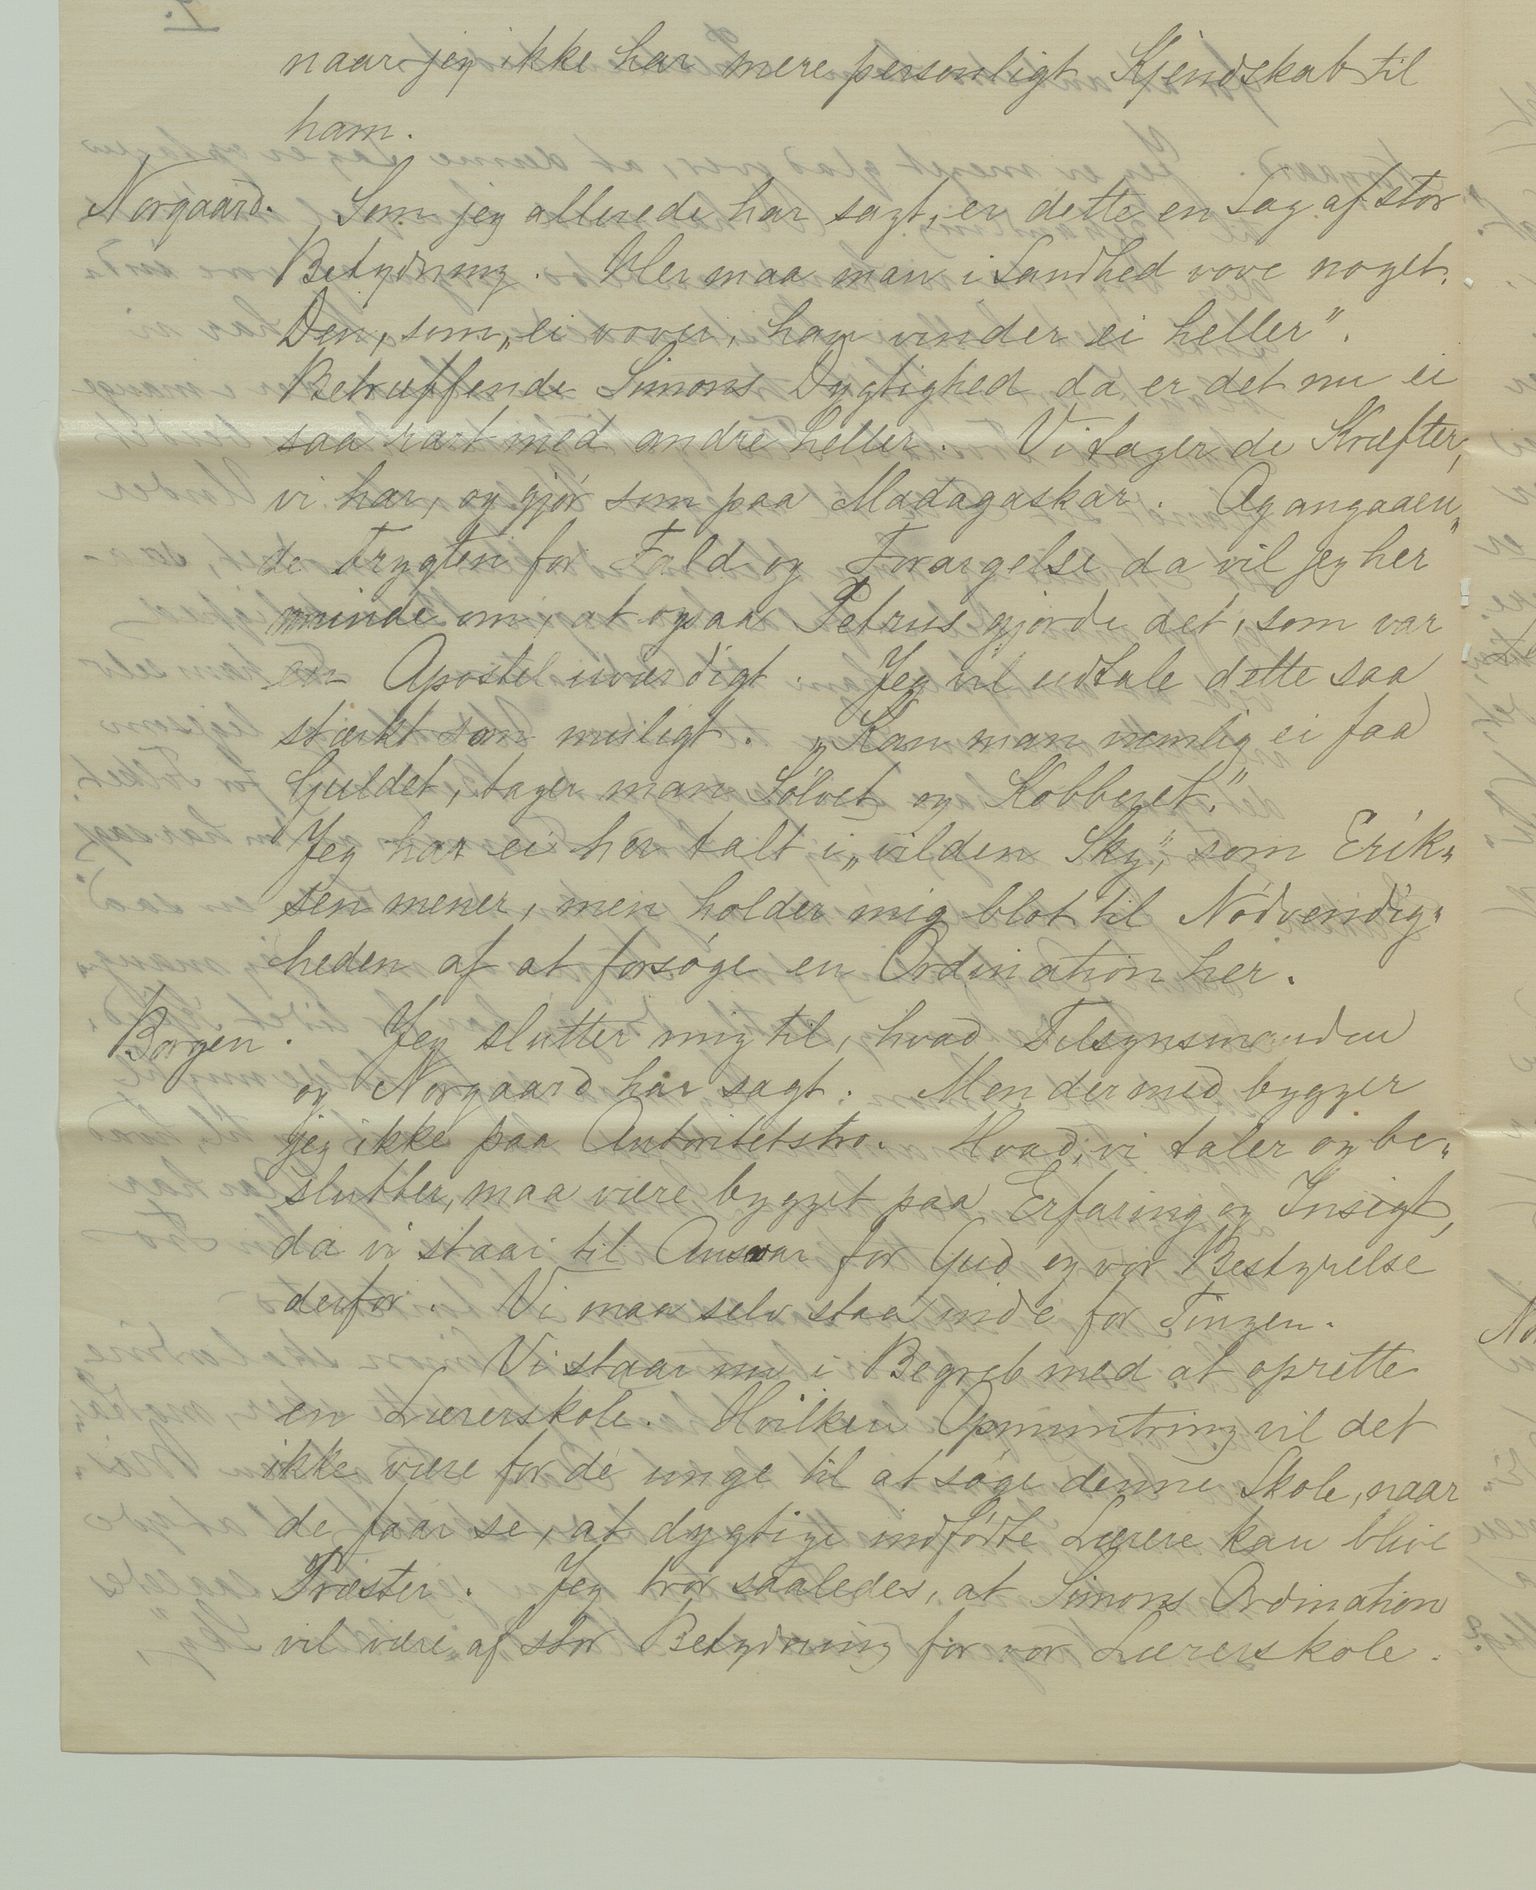 naar jeg ikke har mere personligt Kjendskab til
ham.
Norgaard. Som jeg allerede har sagt, er dette en Sag af stor
Betydning. Her maa man i Sandhed vove noget.
Den, som „ei vover, han vinder ei heller”.
Betræffende Simons Dygtighed da er det nu ei
saa rart med andre heller. Vi tager de Kræfter,
vi har, og gjør som paa Madagaskar. Og angaaen„
de Frygten for Fald og Forargelse da vil jeg her
minde om, at ogsaa Petrus gjorde det, som var
en Apostel uværdigt. Jeg vil udtale dette saa
stærkt som muligt. „Kan man nemlig ei faa
Guldet, tager man Sølvet og Kobberet.”
Jeg har ei her talt i „vilden Sky”, som Erik„
sen mener, men holder mig blot til Nødvendig„
heden af at forsøge en Ordination her.
Borgen. Jeg slutter mig til, hvad Tilsynsmanden
og Norgaard har sagt. Men dermed bygger
jeg ikke paa Autoritetstro. Hvad vi taler og be„
slutter, maa være bygget paa Erfaring og Insigt,
da vi staar til Ansvar for Gud og vor Bestyrelse
derfor. Vi maa selv staa inde for Tingen.
Vi staar nu i Begreb med at oprette
en Lærerskole. Hvilken Opmuntring vil det
ikke være for de unge til at søge denne Skole, naar
de faar se, at dygtige indfødte Lærere kan blive
Præster. Jeg tror saaledes, at Simons Ordination
vil være af stor Betydning for vor Lærerskole.